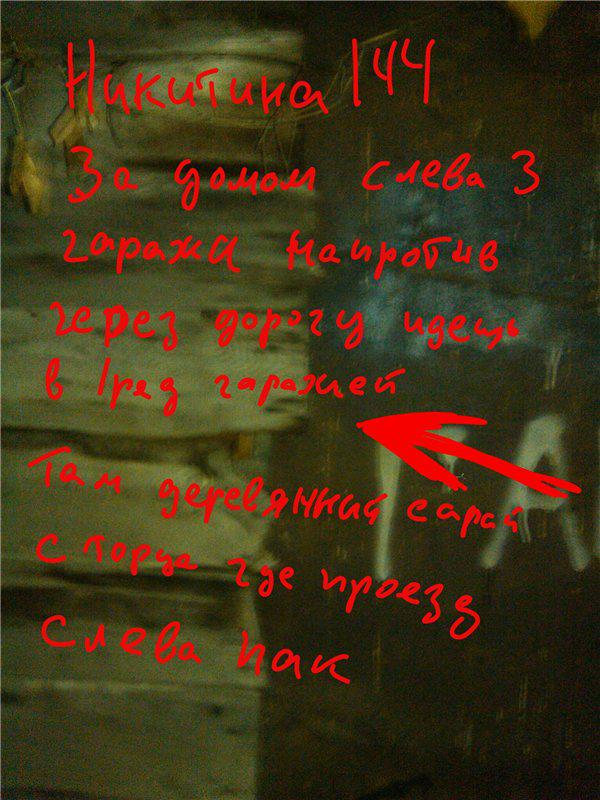 Никитина 144
За домом слева 3
гаража напротив
через дорогу идешь
в 1 ряд гаражей
Там деревянный сарай
с торца где проезд
слева пак
ГА